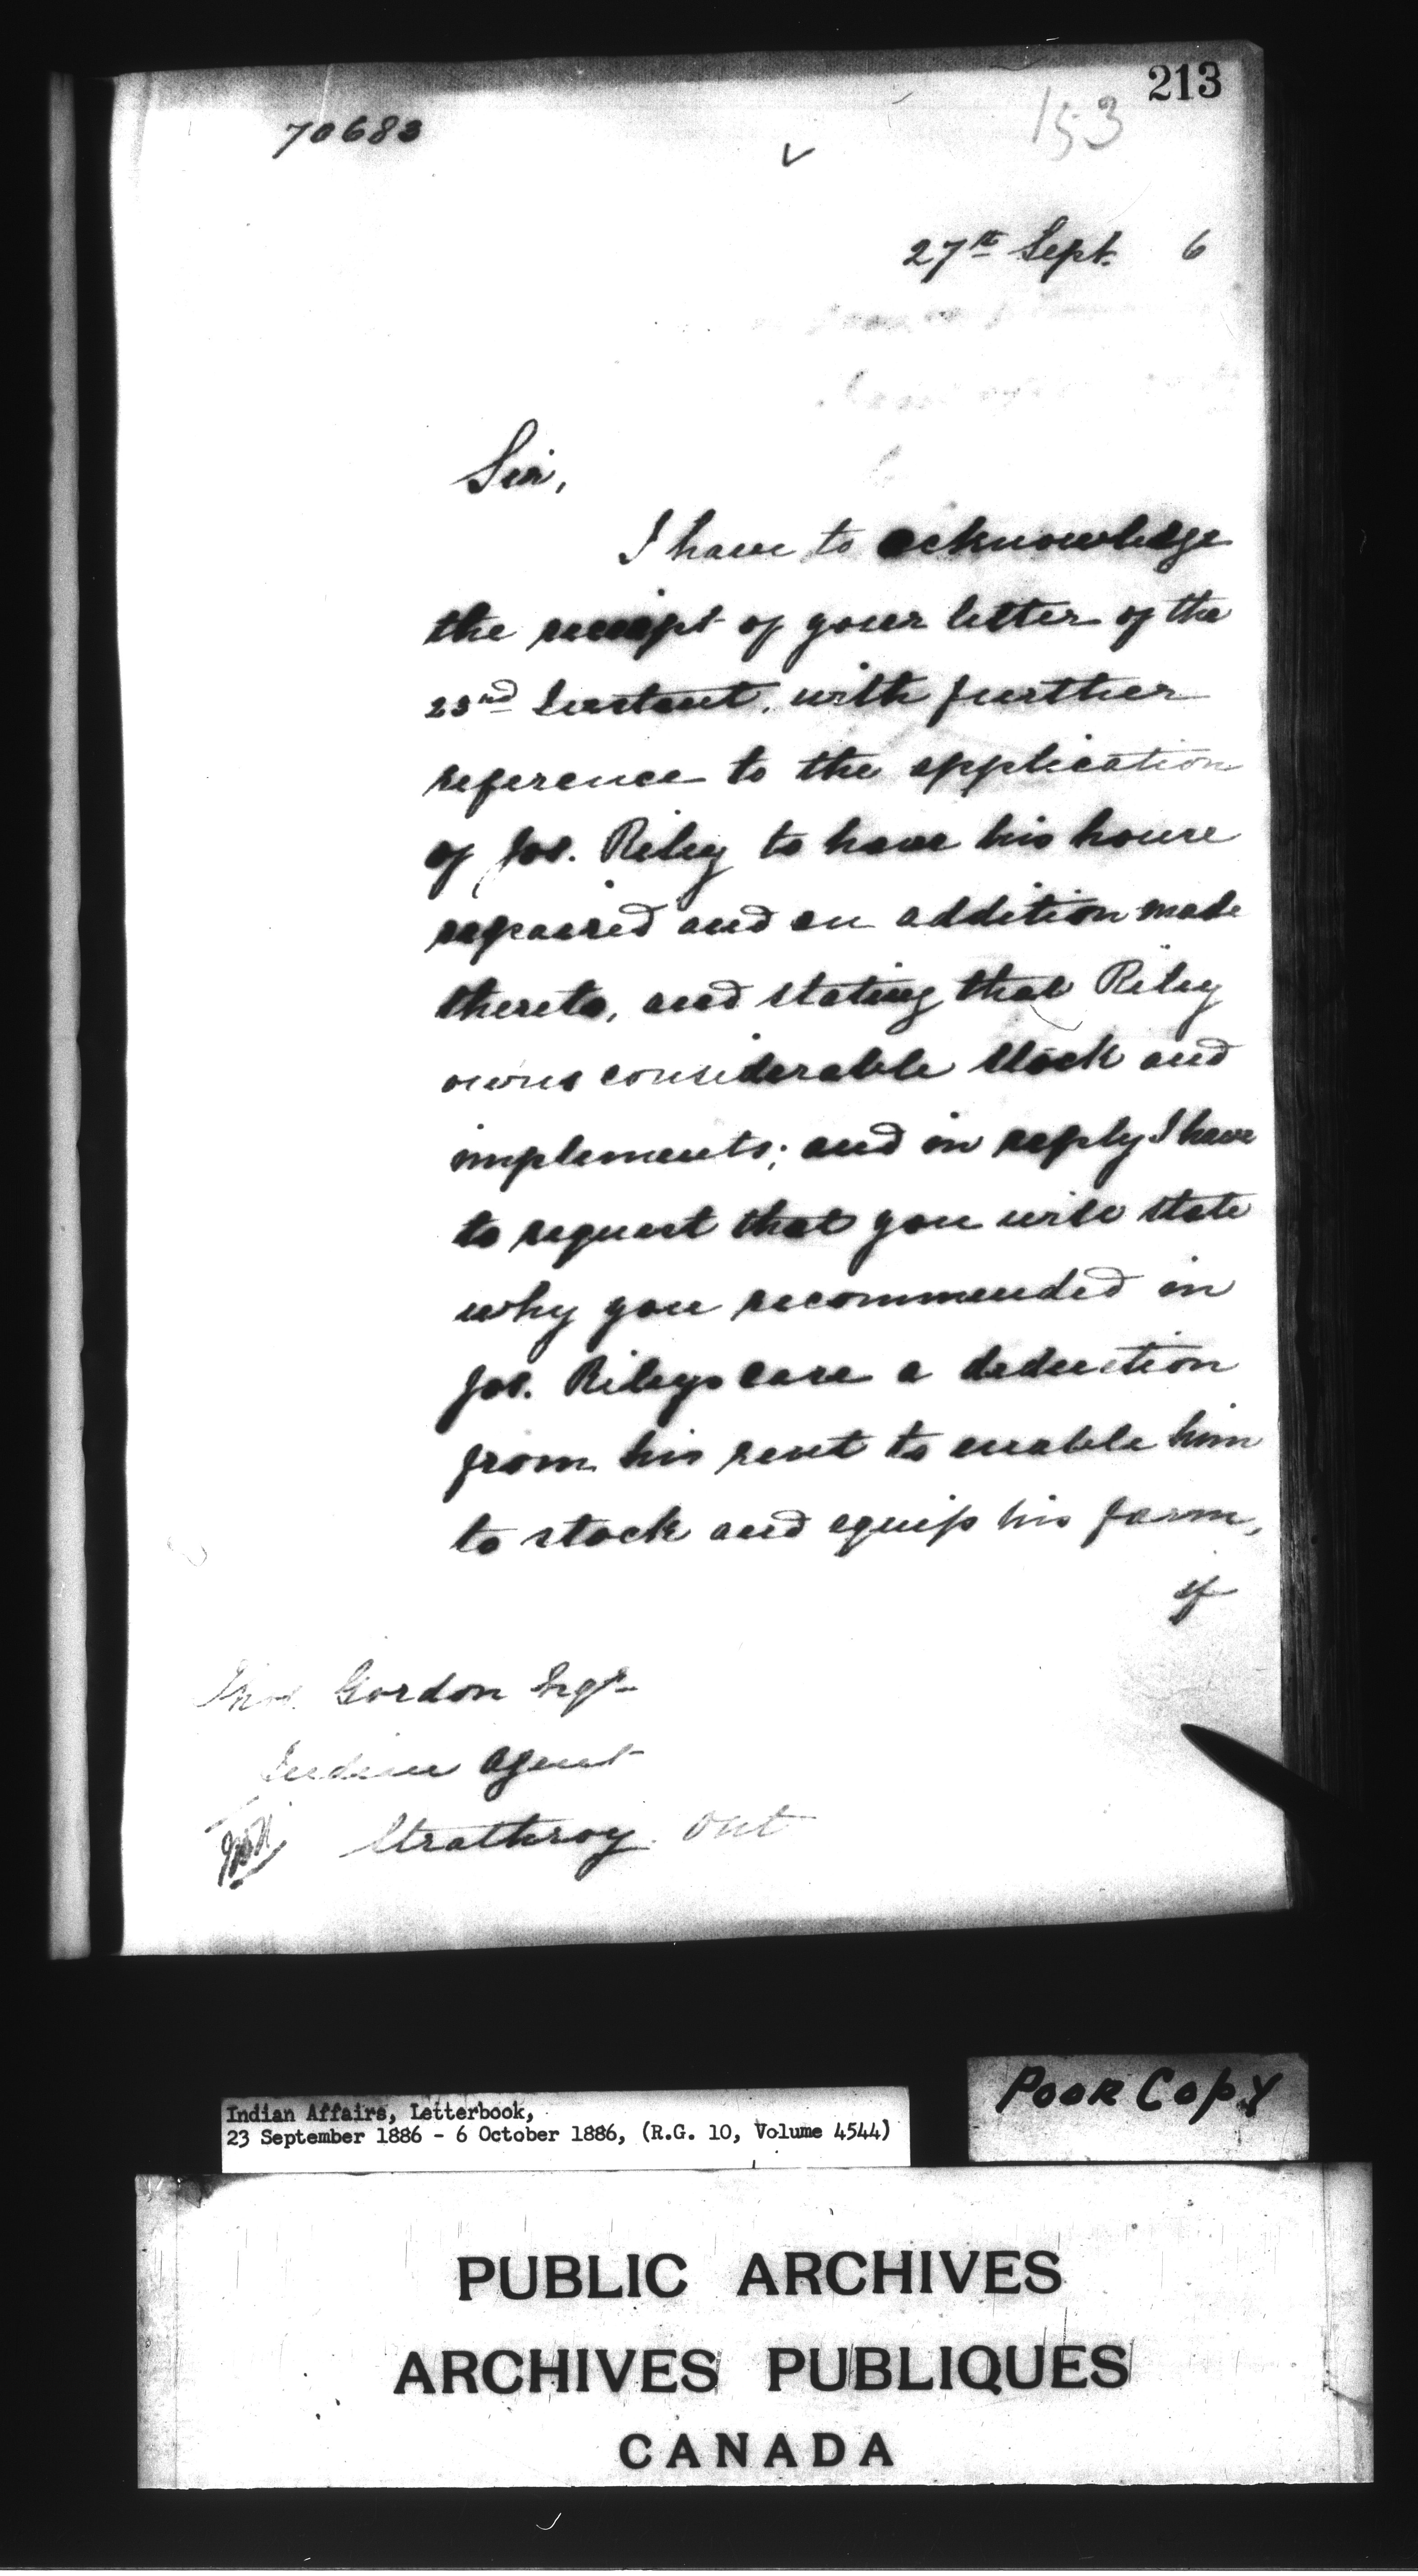 213
153
70683
27th Sept. 6
Sir,
I have to acknowledge
the receipt of your letter of the
23nd Instant, with further
reference to the application
of Jos. Riley to have his house
repaired and an addition made
thereto, and stating that Riley
owns considerable stock and
implements; and in reply I have
to request that you will state
why you recommended in
Jos. Rileys case a deduction
from his rent to enable him
to stock and equip his farm,
if
Thos. Gordon Esqr
Indian Agent
Strathroy. Ont
Poor Copy
Indian Affairs, Letterbook,
23 September 1886 - 6 October 1886, (R.G. 10, Volume 4544)
PUBLIC ARCHIVES
ARCHIVES PUBLIQUES
CANADA